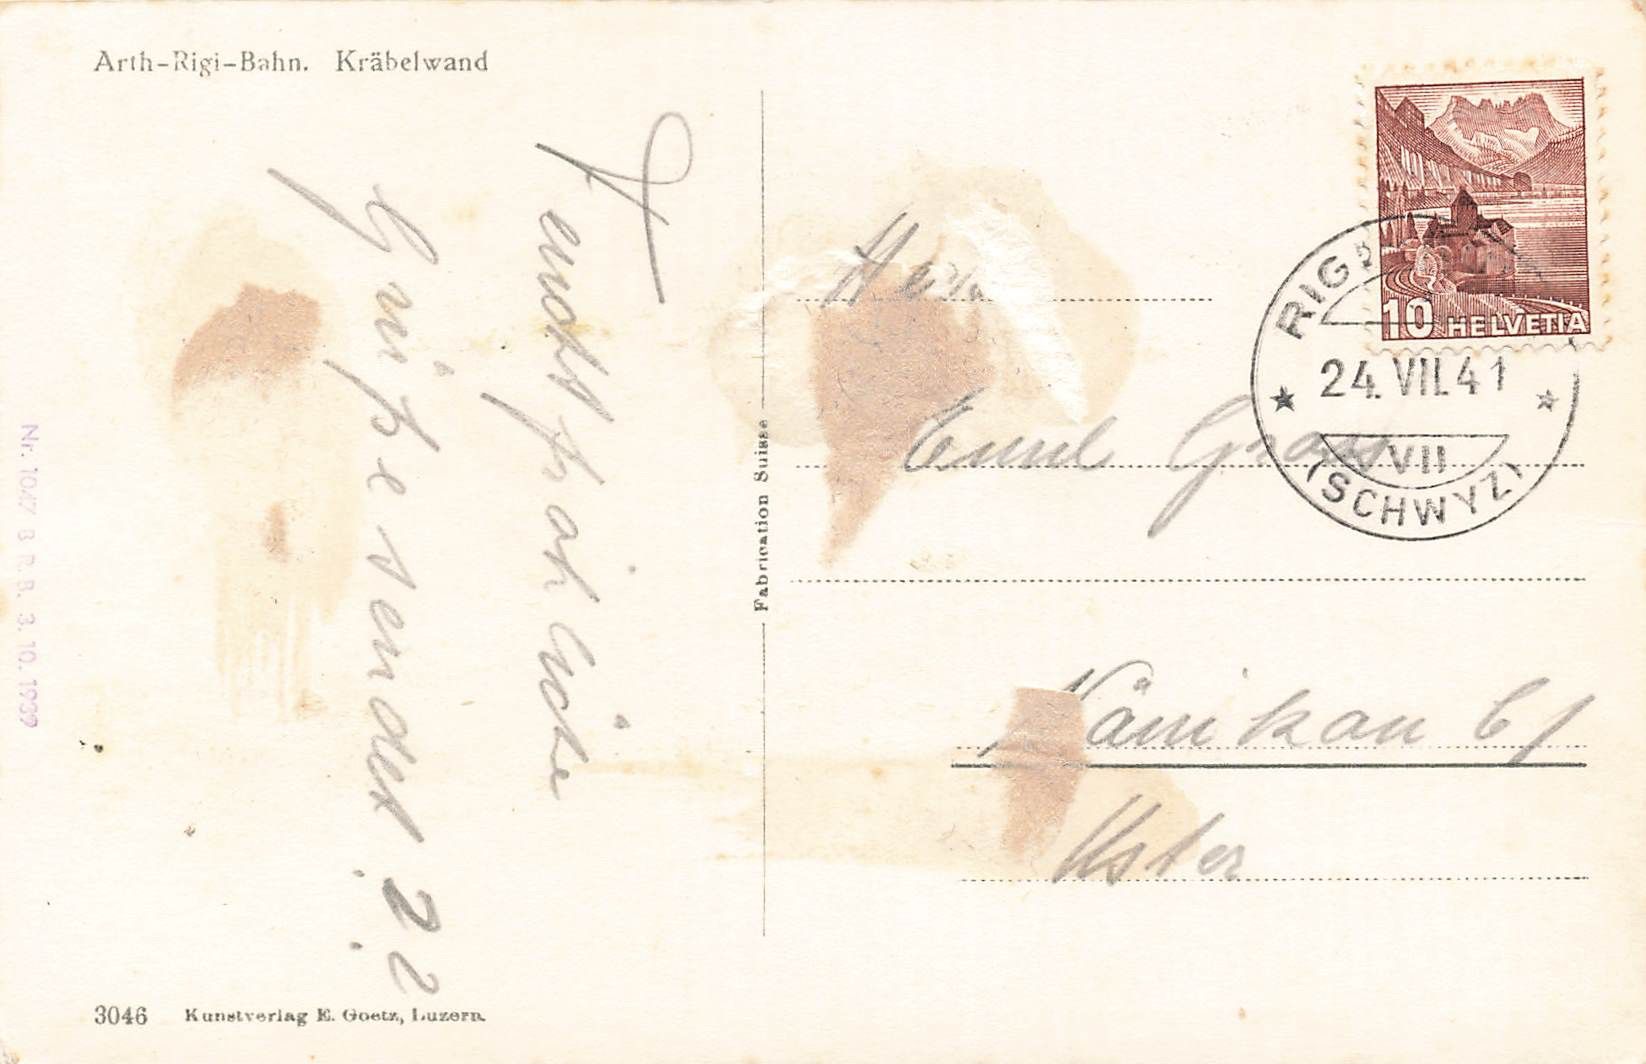 Arth-Rigi-Bahn. Kräbelwand
Freundschaftliche
Grüße sendet ? ?
Nr. 7047 B R. B. 3. 10. 1939
3046 Kunstverlag E. Goetz, Luzern.
Fabrication Suisse
10 HELVETIA
RIGI
24. VII. 41
VII
(SCHWYZ)
Emil Grass
Nänikon b/
Uster